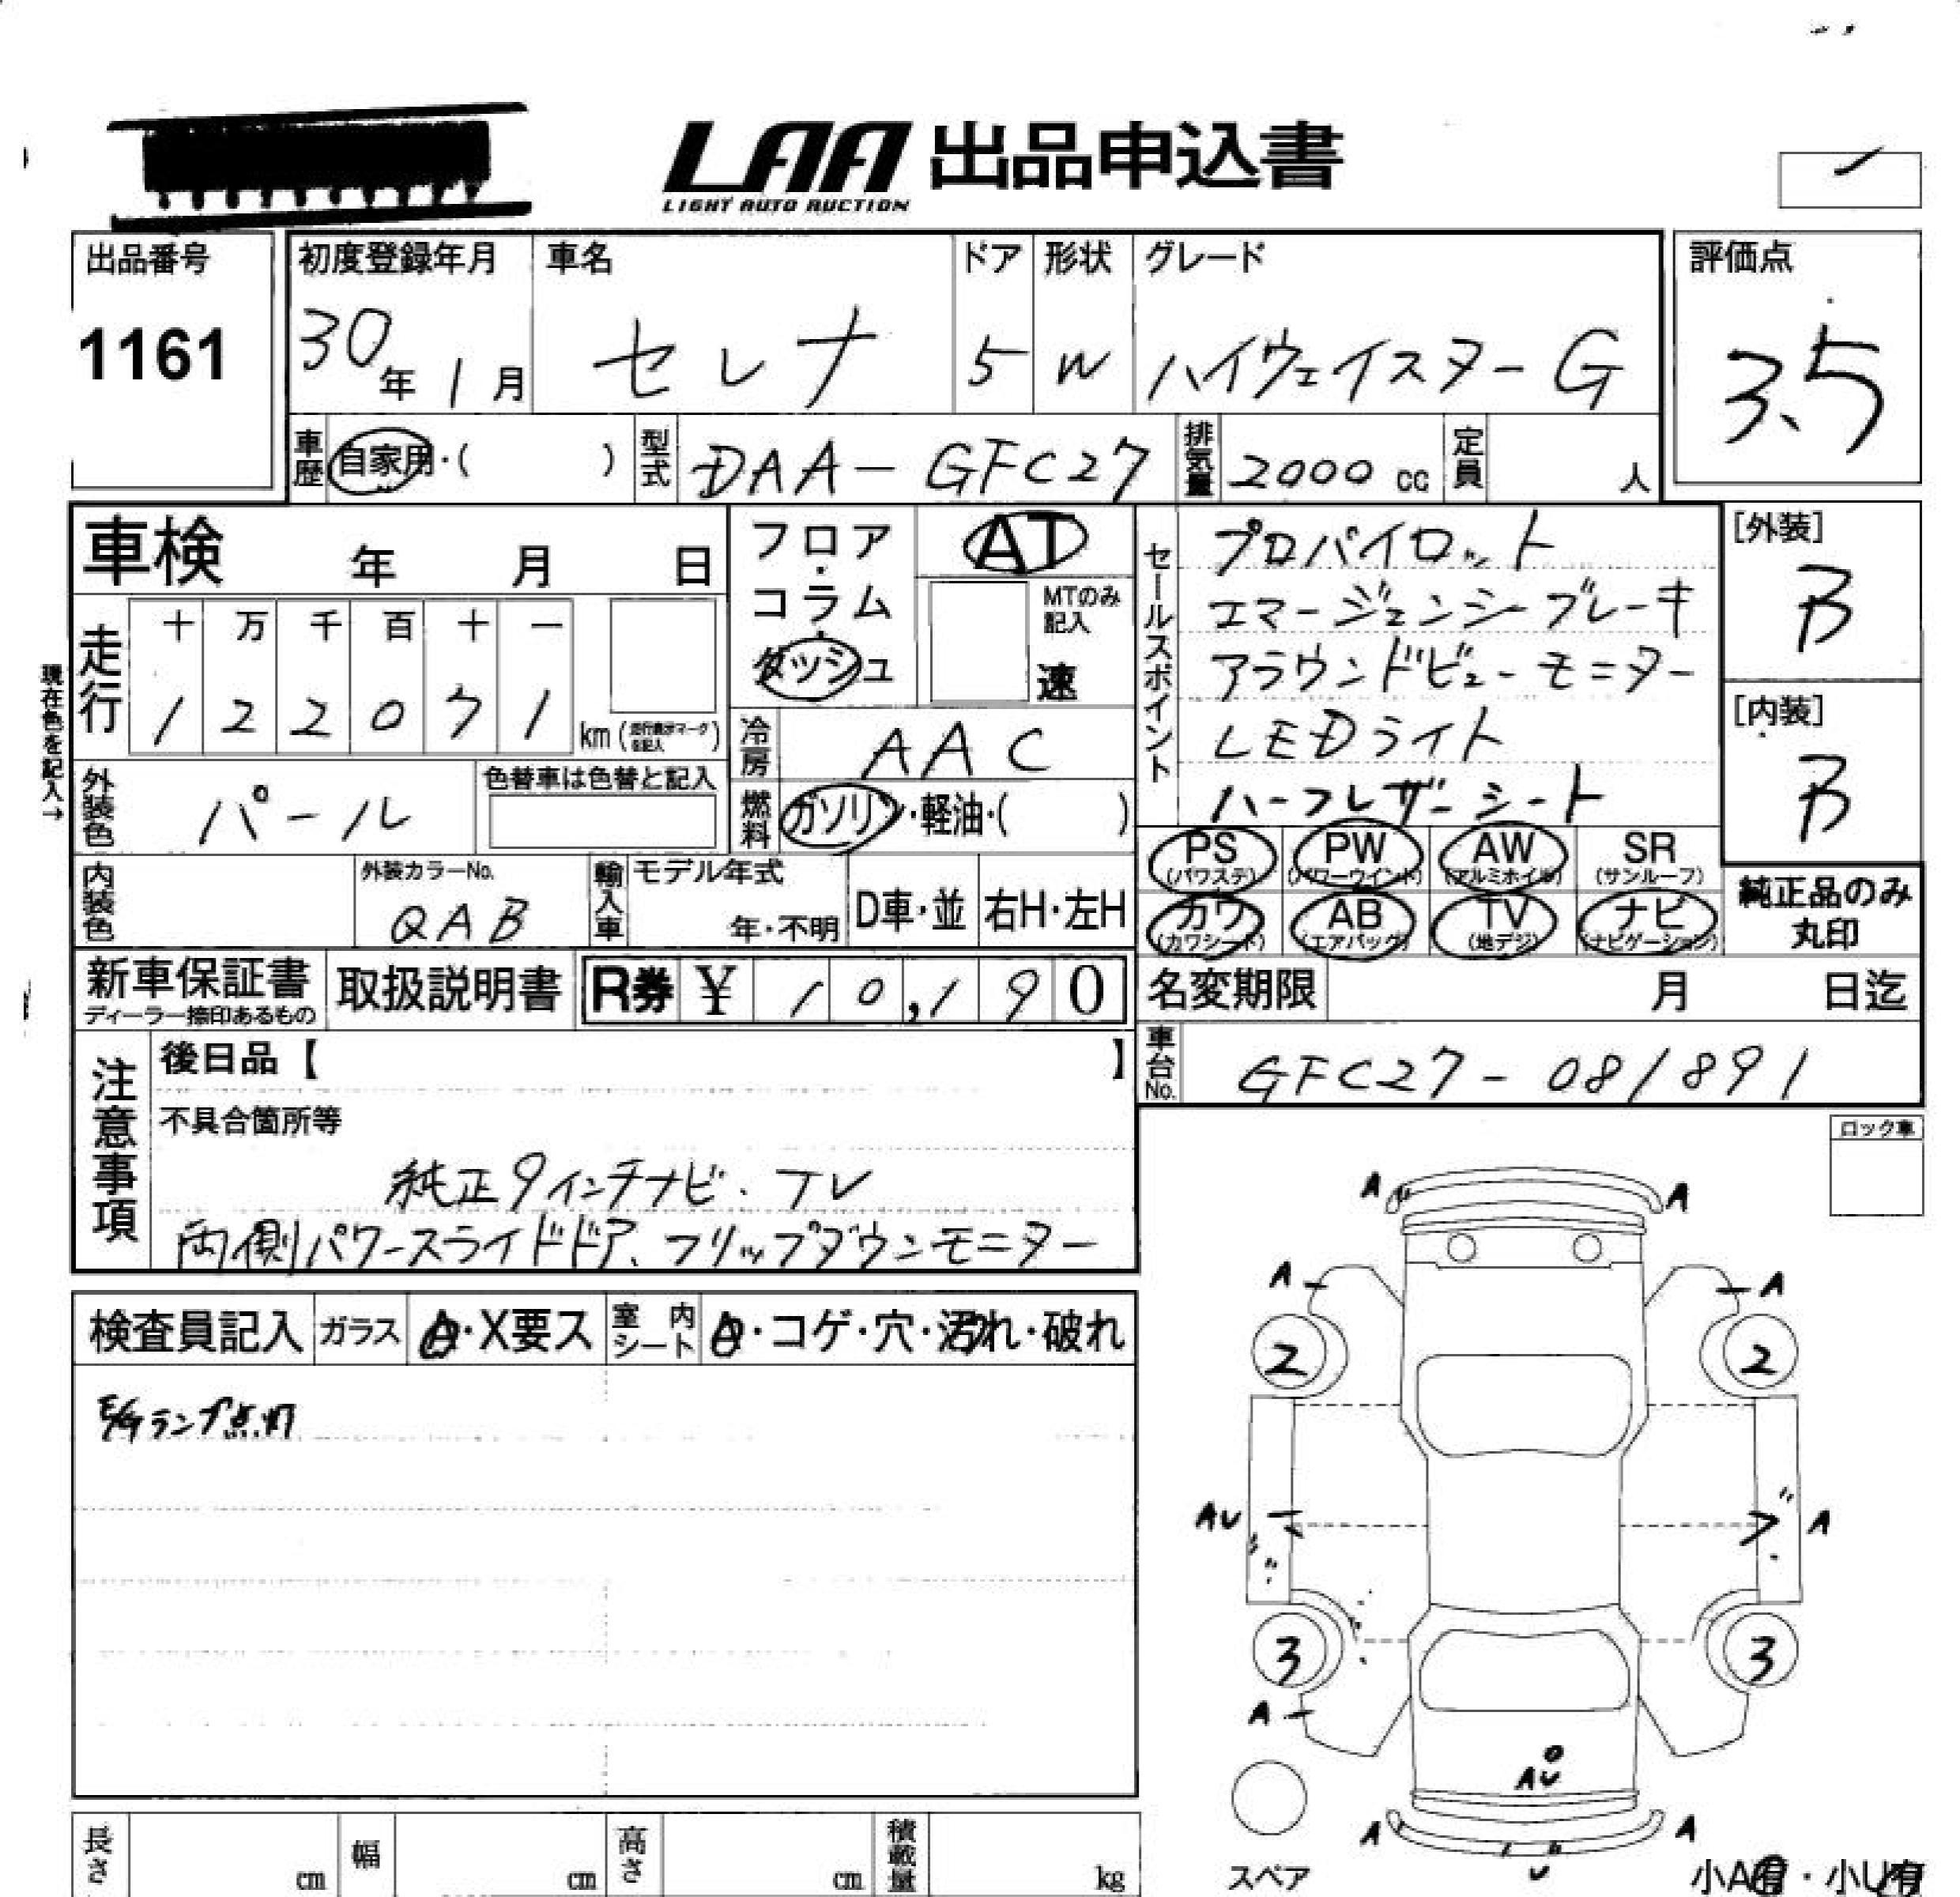 LAA 出品申込書
LIGHT AUTO AUCTION
出品番号
1161
初度登録年月
30年1月
車名
セレナ
ドア
5
形状
W
グレード
ハイウェイスターG
評価点
3.5
車歴
自家用・( )
型式
DAA-GFC27
排気量
2000 cc
定員
人
車検 年 月 日
フロア・コラム・ダッシュ
AT
MTのみ記入
速
現在色を記入→
走行
十 万 千 百 十 一
1 2 2 0 7 1
km (走行表示マークを記入)
冷房
AAC
燃料
ガソリン・軽油・( )
外装色
パール
色替車は色替と記入
内装色
外装カラーNo.
QAB
輸入車
モデル年式
年・不明
D車・並
右H・左H
セールスポイント
プロパイロット
エマージェンシーブレーキ
アラウンドビューモニター
LEDライト
ハーフレザーシート
[外装]
B
[内装]
B
PS (パワステ)
PW (パワーウインド)
AW (アルミホイル)
SR (サンルーフ)
カワ (カワシート)
AB (エアバッグ)
TV (地デジ)
ナビ (ナビゲーション)
純正品のみ丸印
新車保証書
ディーラー捺印あるもの
取扱説明書
R券 ¥ 10,190
名変期限 月 日迄
車台No.
GFC27-081891
注意事項
後日品【 】
不具合箇所等
純正9インチナビ、TV
両側パワースライドドア、フリップダウンモニター
ロック車
検査員記入
ガラス
A・X要ス
室内シート
A・コゲ・穴・汚れ・破れ
E/Gランプ点灯
A A
A A
2 2
AU A
3 3
A
AU
A A
U
スペア
小A有・小U有
長さ cm
幅 cm
高さ cm
積載量 kg